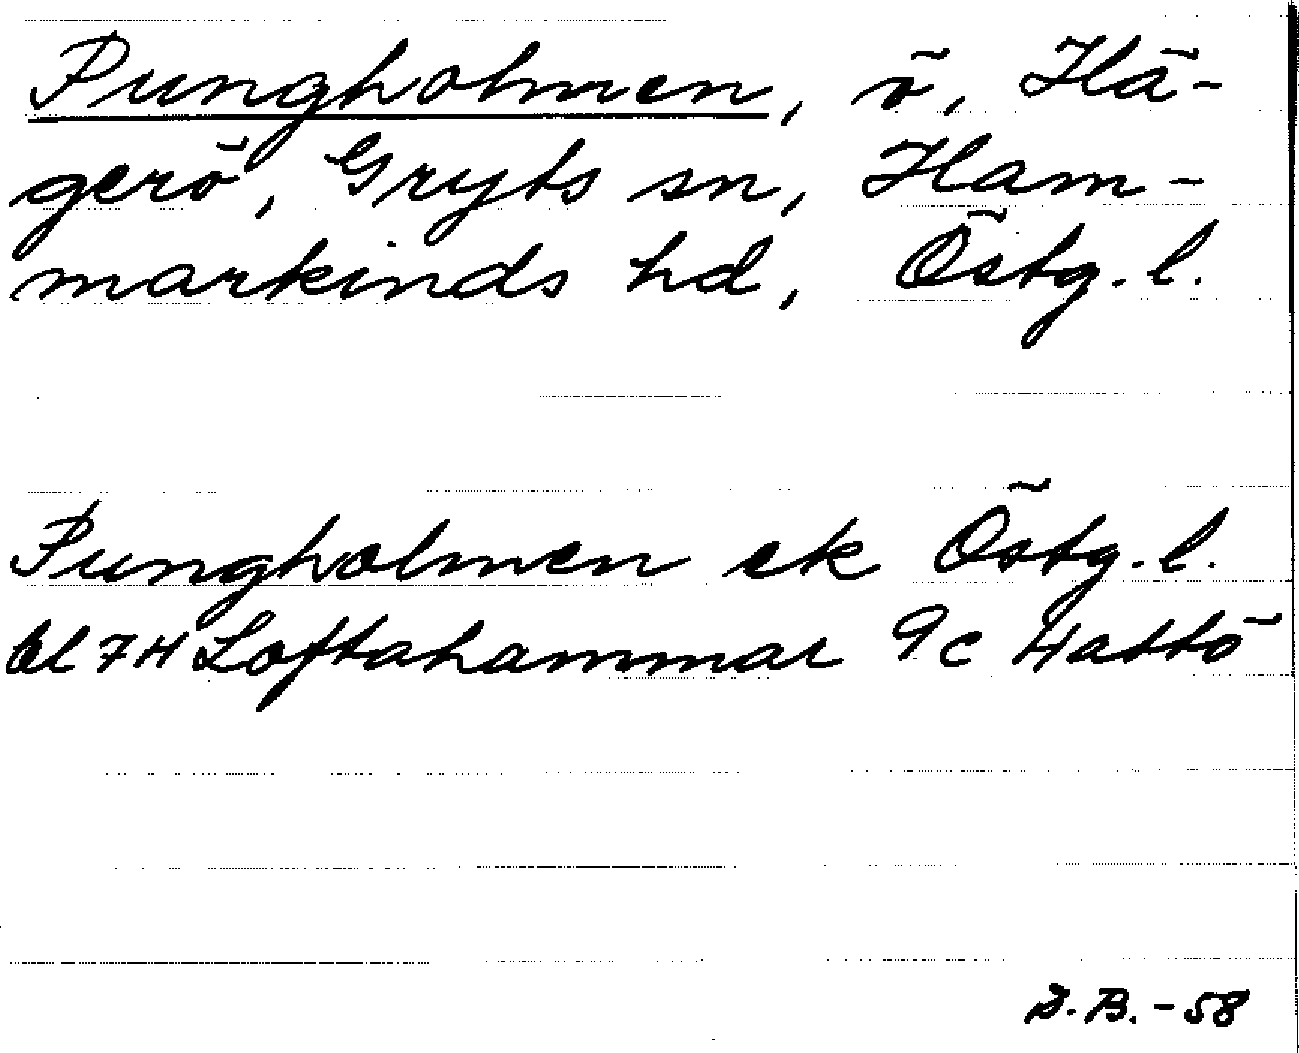 Pungholmen, ö, Hä-
gerö, Gryts sn, Ham-
markinds hd, Östg. l.
Pungholmen ek Östg. l.
bl 7H Loftahammar 9c Hattö
B. -58